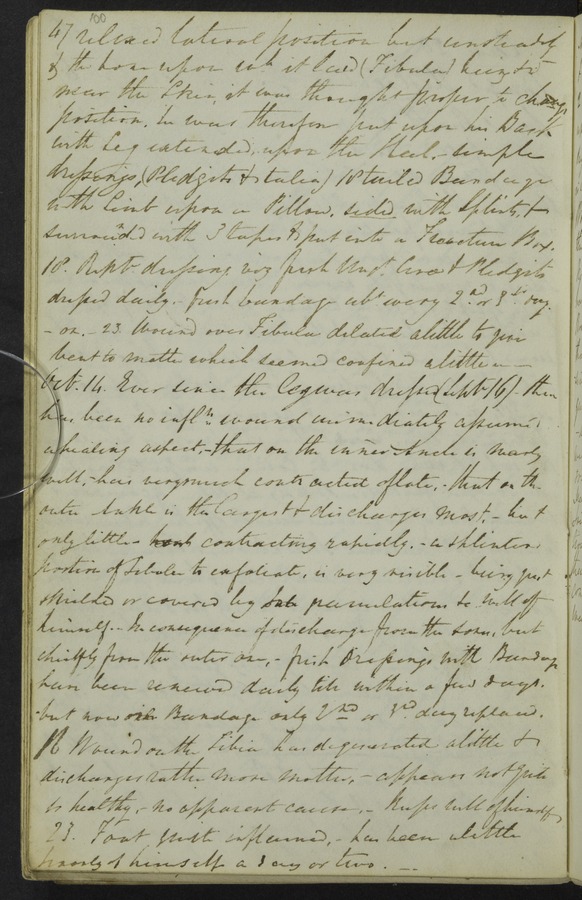 100
47 relaxed lateral position but unsteadily
of the bone upon wh it laid (Fibula) being so
near the Skin, it was thought proper to change
position. he was therefore put upon his Back
with Leg extended, upon the Heel, - simple
dressings, (Pledgets &) 18 tailed Bandage
with Limb upon a Pillow, sides with Splints, &
surrounded with 3 tapes & put into a Fracture Box.
18. Rept dressing viz fresh Ungt Cerae & Pledgets
dressed daily - fresh bandage abt every 2nd or 3rd day.
- on. - 23. Wound over Fibula dilated a little to give
vent to matter which seemed confined a little -
Oct. 14. Ever since the Leg was dressed (Sept. 16) there
has been no infln wound immediately assumed
a healing aspect, - that on the inner Ancle is nearly
well, - has very much contracted of late, - that on the
outer Ankle is the largest & discharges most, - but
only little - contracting rapidly, - a splintered
portion of Fibula to exfoliate, is very visible - being just
shielded or covered by granulations is well of
himself. - In consequence of discharge from the sores, but
chiefly from the outer one, - fresh Dressings with Bandage
have been renewed daily till within a few days.
but now Bandage only 2nd or 3rd day replaced.
Wound on the Tibia has degenerated a little &
discharges rather more matter, - appears not quite
so healthy, - no apparent cause. - Keeps well of himself
23. Foot much inflamed, - has been a little
poorly of himself a day or two. -